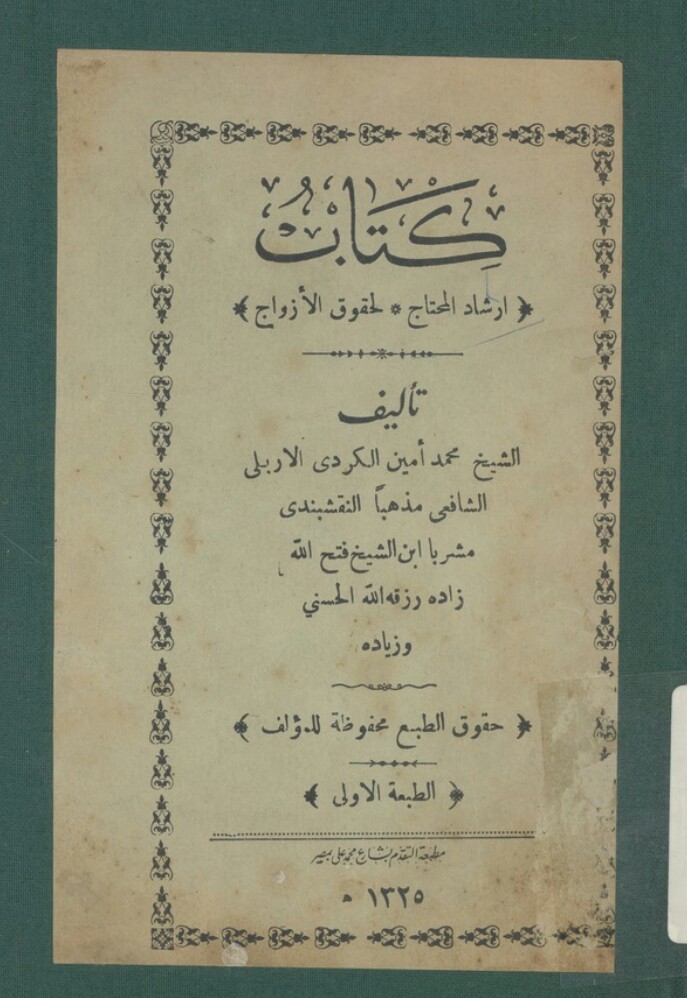 كتاب
﴿ ارشاد المحتاج * لحقوق الأزواج ﴾
تأليف
الشيخ محمد أمين الكردى الاربلى
الشافعى مذهباً النقشبندى
مشربا ابن الشيخ فتح الله
زاده رزقه الله الحسني
وزياده
﴿ حقوق الطبع محفوظة للمؤلف ﴾
﴿ الطبعة الاولى ﴾
مطبعة التقدم بشارع محمد على بمصر
١٣٢٥ ه